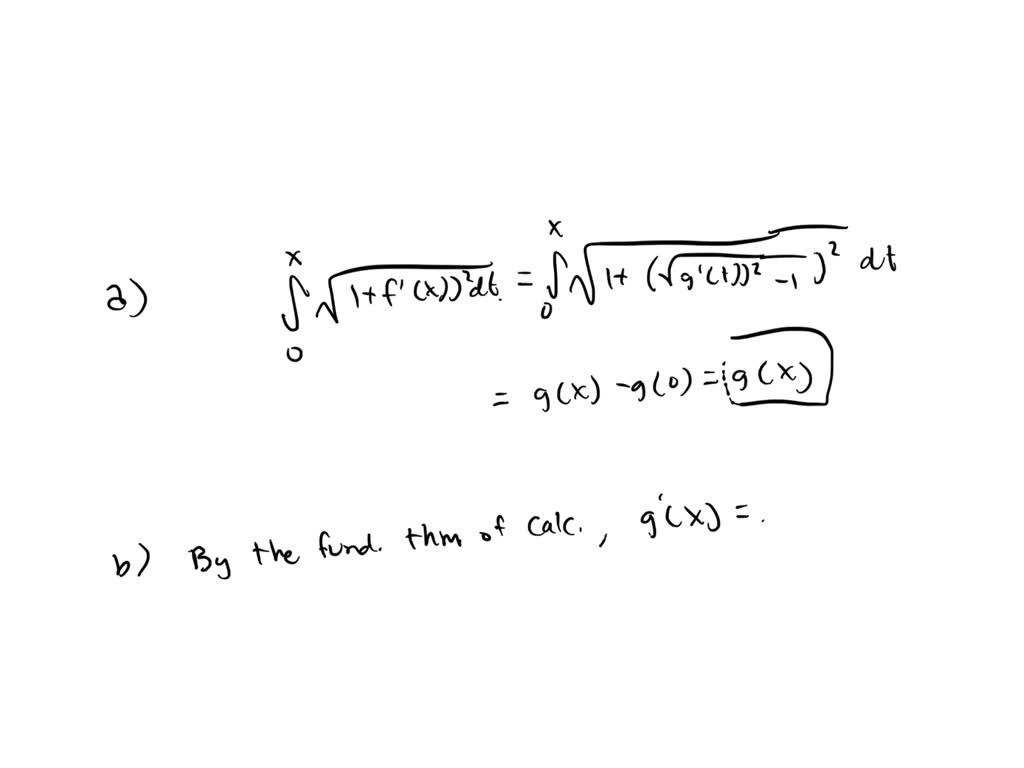 a) ∫₀ˣ √(1+f'(x))² dt. = ∫₀ˣ √(1+(√(g'(t))² -1)²) dt
= g(x) -g(0) = g(x)
b) By the fund. thm of calc., g'(x) = .